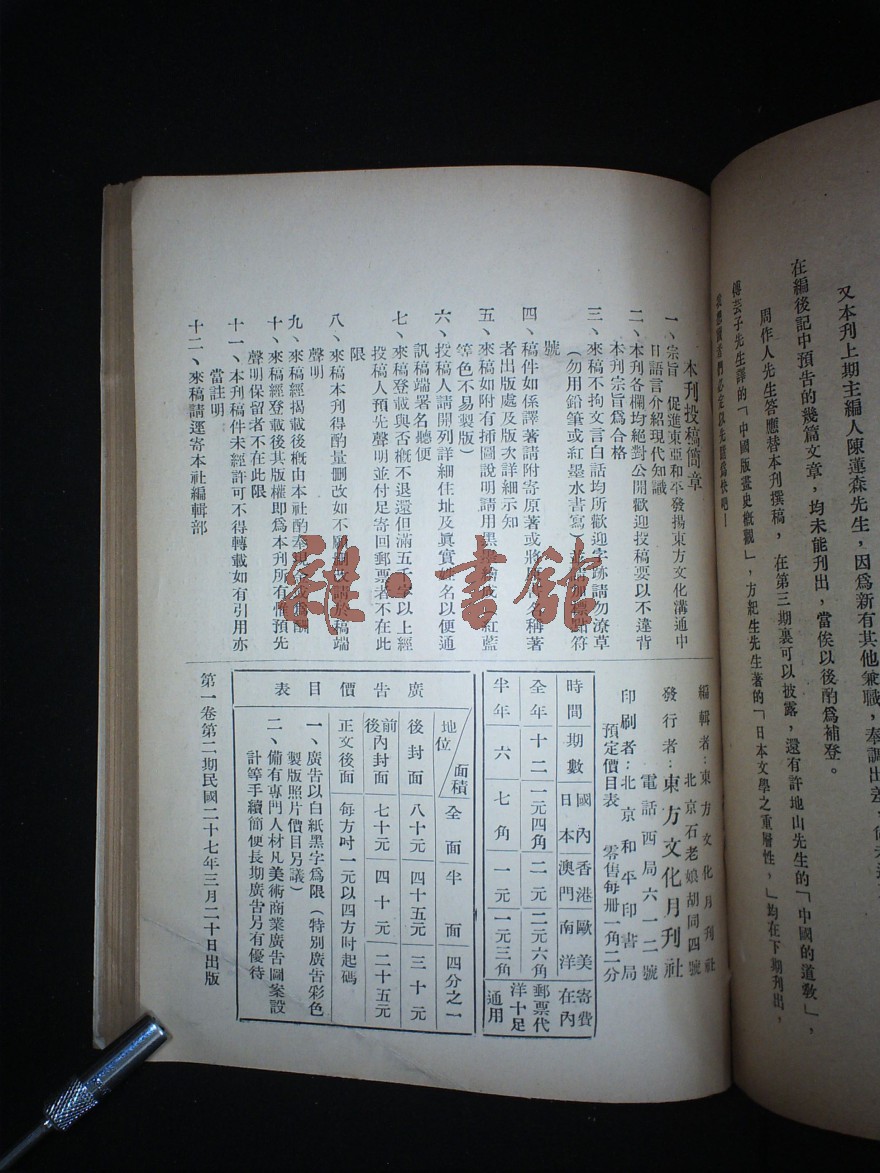 又本刊上期主編人陳蓮森先生，因爲新有其他兼職，奉調出差，
在編後記中預告的幾篇文章，均未能刊出，當俟以後酌爲補登。
周作人先生答應替本刊撰稿，在第三期裏可以披露，還有許地山先生的「中國的道敎」，
傅芸子先生譯的「中國版畫史槪觀」，方紀生先生著的「日本文學之重層性，」均在下期刊出，
我想讀者們必定以先睹爲快吧！
本刊投稿簡章
一、宗旨　促進東亞和平發揚東方文化溝通中
日語言介紹現代知識
二、本刊各欄均絕對公開歡迎投稿要以不違背
本刊宗旨爲合格
三、來稿不拘文言白話均所歡迎字跡請勿潦草
（勿用鉛筆或紅墨水書寫）並請加標點符
號
四、稿件如係譯著請附寄原著或將原著名稱著
者出版處及版次詳細示知
五、來稿如附有插圖說明請用黑墨繪成紅藍
等色不易製版）
六、投稿人請開列詳細住址及眞實姓名以便通
訊稿端署名聽便
七、來稿登載與否槪不退還但滿五千字以上經
投稿人預先聲明並付足寄回郵票者不在此
限
八、來稿本刊得酌量刪改如不願刪改請於稿端
聲明
九、來稿經揭載後槪由本社酌奉
十、來稿經登載後其版權即爲本刊所有惟預先
聲明保留者不在此限
十一、本刊稿件未經許可不得轉載如有引用亦
當註明
十二、來稿請逕寄本社編輯部
雜·書館
編輯者：東方文化月刊社
北京石老娘胡同四號
發行者：東方文化月刊社
電話西局六一二號
印刷者：北京和平印書局
預定價目表　零售每册一角二分
時間　期數　國內日本　香港澳門　歐美南洋　寄費在內
全年　十二　一元四角　二元　二元六角　郵票代洋十足通用
半年　六　七角　一元　一元三角
廣告價目表
地位／面積　全面　半面　四分之一
後封面　八十元　四十五元　三十元
前後內封面　七十元　四十元　二十五元
正文後面　每方吋一元以四方吋起碼
一、廣告以白紙黑字爲限（特別廣告彩色
製版照片價目另議）
二、備有專門人材凡美術商業廣告圖案設
計等手續簡便長期廣告另有優待
第一卷第二期民國二十七年三月二十日出版